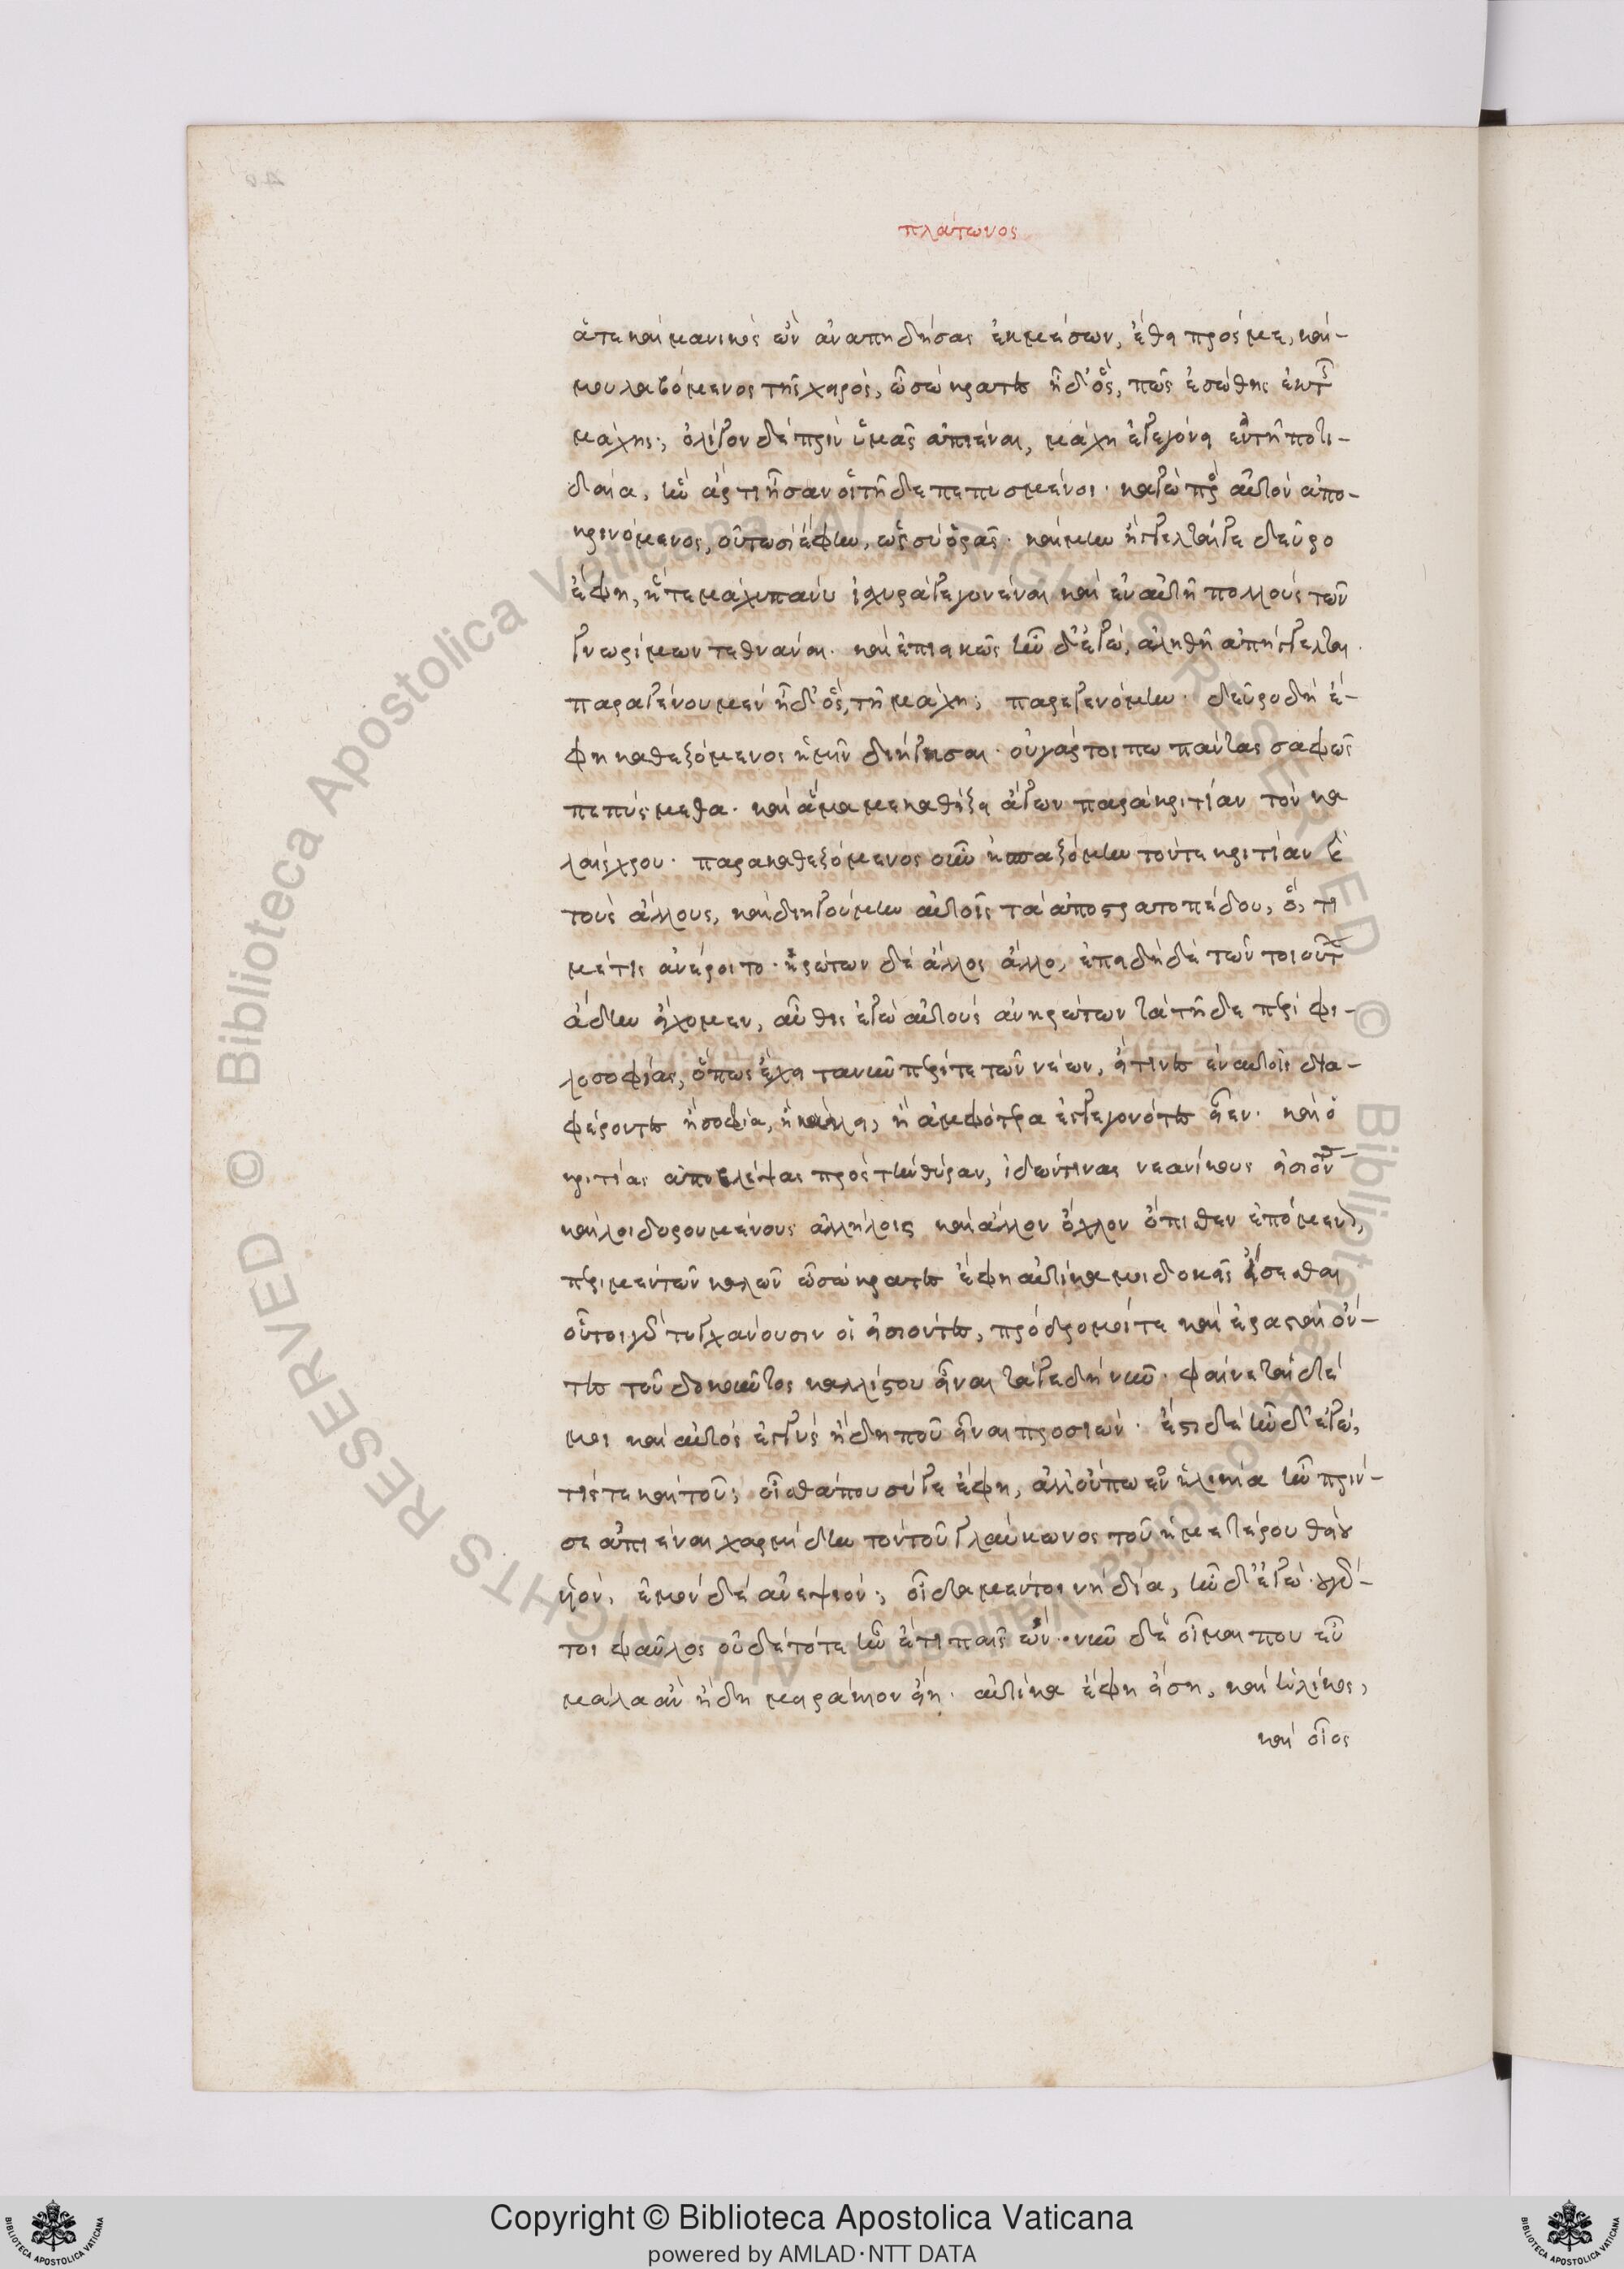 πλάτωνος
ἅτε καὶ μανικὸς ὢν ἀναπηδήσας ἐκ μέσων, ἔθει πρός με, καί
μου λαβόμενος τῆς χειρός, ὦ σώκρατες ἦ δ' ὅς, πῶς ἐσώθης ἐκ τῆς
μάχης; ὀλίγον δὲ πρὶν ὑμᾶς ἀπιέναι, μάχη ἐγεγόνει ἐν τῇ ποτι-
δαία, ἣν ἄρτι ἦσαν οἱ τῇδε πεπυσμένοι. καὶ ἐγὼ πρὸς αὐτὸν ἀπο-
κρινόμενος, οὑτωσὶ ἔφην, ὡς σὺ ὁρᾷς. καὶ μὴν ἤγγελταί γε δεῦρο
ἔφη, ἥ τε μάχη πάνυ ἰσχυρὰ γεγονέναι καὶ ἐν αὐτῇ πολλοὺς τῶν
γνωρίμων τεθνάναι. καὶ ἐπιεικῶς ἦν δ' ἐγώ, ἀληθῆ ἀπήγγελται.
παραγένου μὲν ἦ δ' ὅς, τῇ μάχη; παρεγενόμην. δεῦρο δὴ ἔ-
φη καθεζόμενος ἡμῖν διήγησαι. οὐ γάρ τοι πω πάντα σαφῶς
πεπύσμεθα. καὶ ἅμα με καθίζει ἄγων παρὰ κριτίαν τὸν κα
λαίσχρου. παρακαθεζόμενος οὖν ἠσπαζόμην τόν τε κριτίαν καὶ
τοὺς ἄλλους, καὶ διηγούμην αὐτοῖς τὰ ἀπὸ στρατοπέδου, ὅ, τι
μέ τις ἀνέροιτο. ἠρώτων δὲ ἄλλος ἄλλο, ἐπειδὴ δὲ τῶν τοιούτων
ἄδην εἴχομεν, αὖθις ἐγὼ αὐτοὺς ἀνηρώτων τὰ τῇδε περὶ φι-
λοσοφίας, ὅπως ἔχει τανῦν περί τε τῶν νέων, εἴ τινες ἐν αὐτοῖς δια-
φέροντες ἢ σοφία, ἢ κάλλει, ἢ ἀμφότερα ἐγγεγονότες εἶεν. καὶ ὁ
κριτίας ἀποβλέψας πρὸς τὴν θύραν, ἰδών τινας νεανίσκους εἰσιόντας
καὶ λοιδορουμένους ἀλλήλοις καὶ ἄλλον ὄχλον ὄπισθεν ἑπόμενον,
περὶ μὲν τῶν καλῶν ὦ σώκρατες ἔφη αὐτίκα μοι δοκεῖς εἴσεσθαι
οὗτοι γὰρ τυγχάνουσιν οἱ εἰσιόντες, πρόδρομοί τε καὶ ἐρασταὶ ὄν-
τες τοῦ δοκοῦντος καλλίστου εἶναι τά γε δὴ νῦν. φαίνεται δέ
μοι καὶ αὐτὸς ἐγγὺς ἤδη που εἶναι προσιών. ἔστι δὲ ἦν δ' ἐγώ,
τίς τε καὶ τοῦ; οἶσθά που σύ γε ἔφη, ἀλλ' οὔπω ἐν ἡλικία ἦν πρίν
σε ἀπιέναι χαρμίδην τὸν τοῦ γλαύκωνος τοῦ ἡμετέρου θείου
υἱόν, ἐμὸν δὲ ἀνεψιόν; οἶδα μέντοι νὴ δία, ἦν δ' ἐγώ. οὐ γάρ
τοι φαῦλος οὐδὲ τότε ἦν ἔτι παῖς ὤν. νῦν δὲ οἶμαι που εὖ
μάλα ἂν ἤδη μειράκιον εἴη. αὐτίκα ἔφη εἴση, καὶ ἡλίκος,
καὶ οἷος